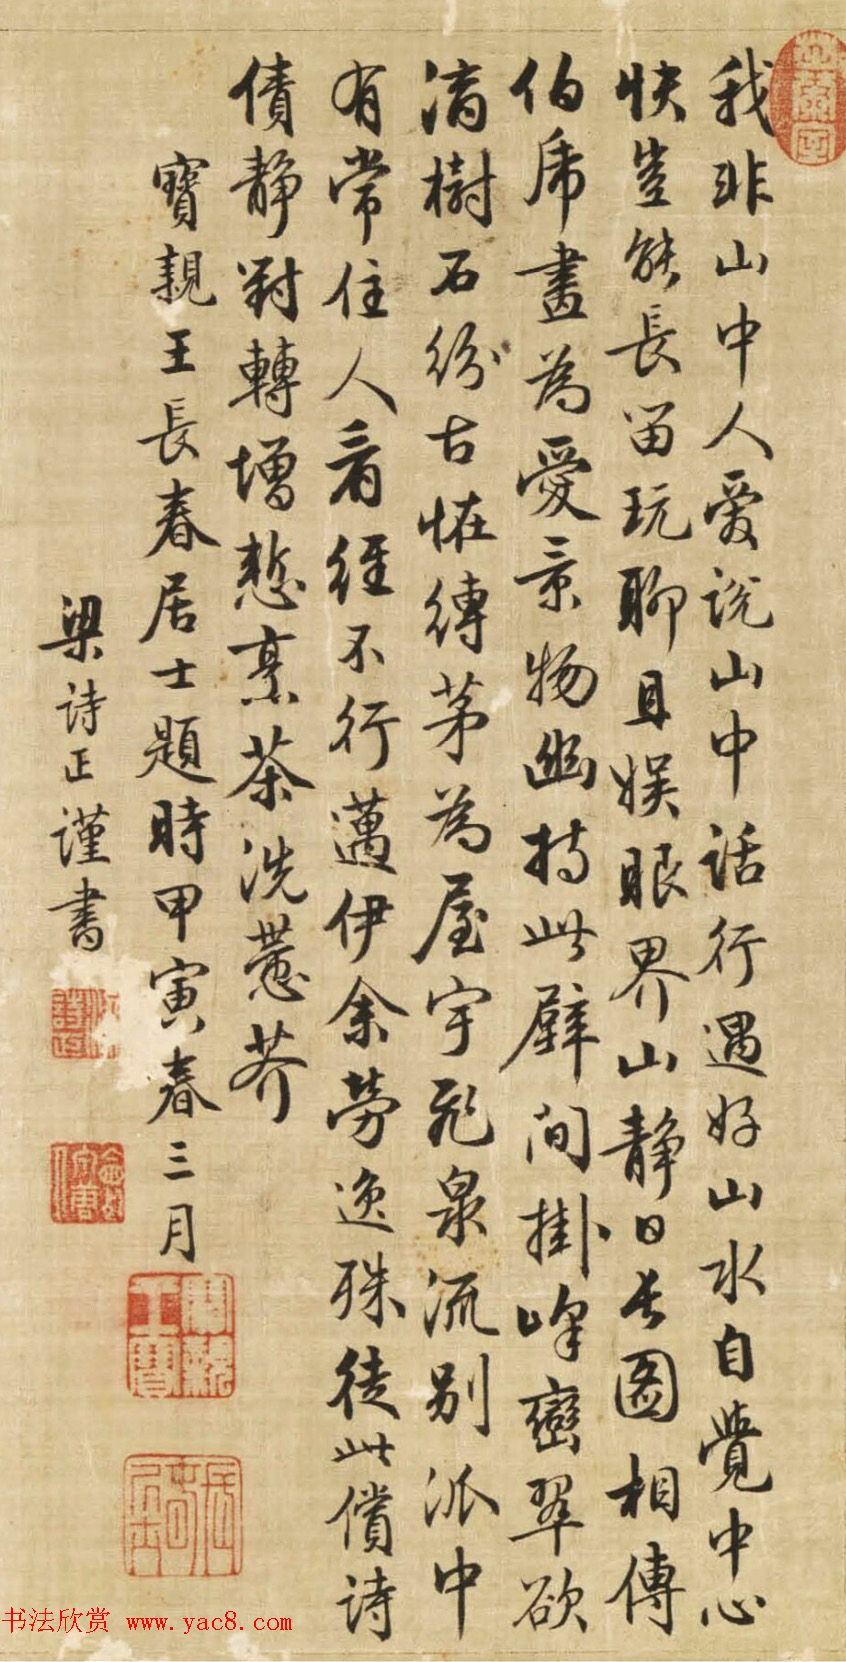 我非山中人愛說山中話行遇好山水自覺中心
快豈能長留玩聊且娛眼界山靜日長圖相傳
伯虎畫為愛景物幽持此壁間掛峰巒翠欲
滴樹石紛古怪縛茅為屋宇飛泉流別派中
有常住人看經不行邁伊余勞逸殊徒此償詩
債靜對轉增慙烹茶洗薏芥
寶親王長春居士題時甲寅春三月
梁詩正謹書
寶親王寶
长春居士
书法欣赏 www.yac8.com